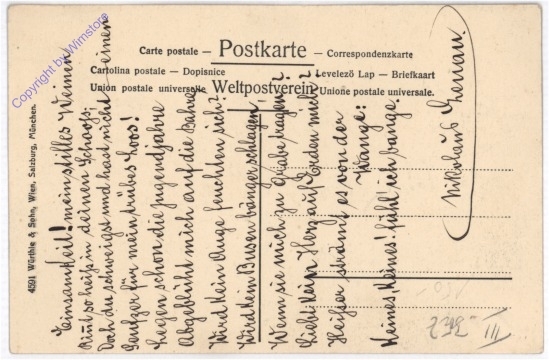 Carte postale — Postkarte — Correspondenzkarte
Cartolina postale — Dopisnice
Levelező Lap — Briefkaart
Union postale universelle Weltpostverein Unione postale universale.
4591 Würthle & Sohn, Wien, Salzburg, München.
Copyright by Wimstore
Einsamkeit! mein stilles Weinen
Rinnt so heiß in deinen Schooß;
Doch du schweigst und hast nicht einen
Seufzer für mein trübes Loos!
Legen schon die Jugendjahre
Abgeblüht mich auf die Bahre,
Wird kein Auge feuchten sich?
Wird kein Busen bänger schlagen,
Wenn sie mich zu Grabe tragen?
Liebt kein Herz auf Erden mich?
Heißer strömt es von der
Wange:
Keines! Keines! fühl' ich bange.
Nikolaus Lenau.
III